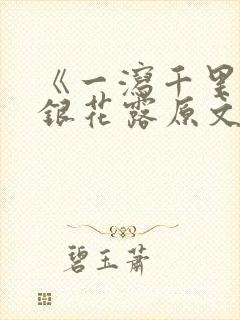 《一泻千里
银花露原文
碧玉萧